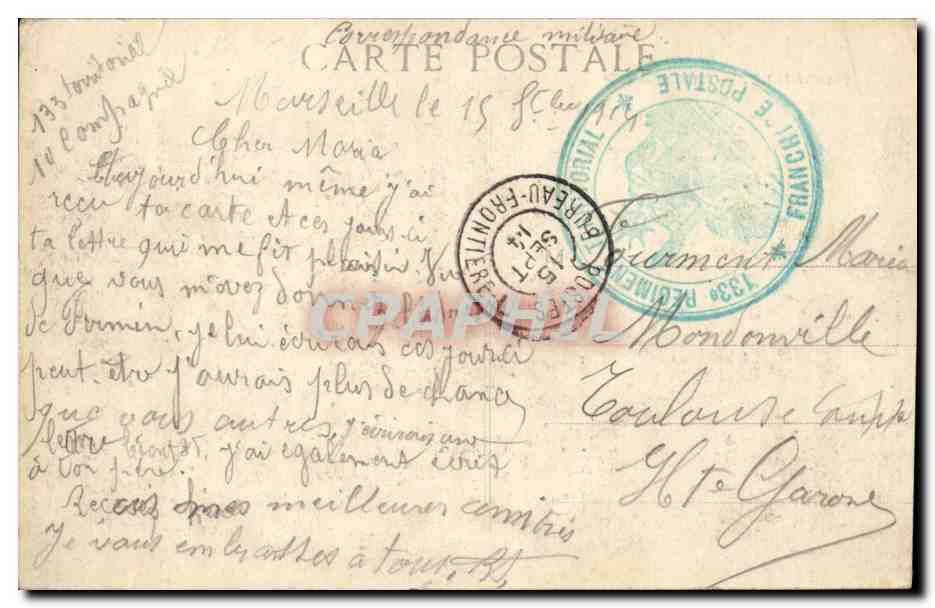 Correspondance militaire
CARTE POSTALE
133 territorial
1e Compagnie
Marseille le 15 1914
Cher Maria
Aujourd'hui même j'ai
recu ta carte et ces jours-ci
ta lettre qui me fit plaisir. Vu
que vous m'avez
de Firmin, je lui écrirais ces jours ci
peut-etre j'aurais plus de chance
que vous autres j'écrirais une
lettre bientot, j'ai également écris
à ton père.
Recevez mes meilleures amitiés
Je vous embrasse à tous.
133e REGIMENT TERRITORIAL
FRANCHISE POSTALE
POSTES
BUREAU-FRONTIERE
15
SEPT
14
CPAPHIL
Tourment Maria
Mondonville
Toulouse
Hte Garone